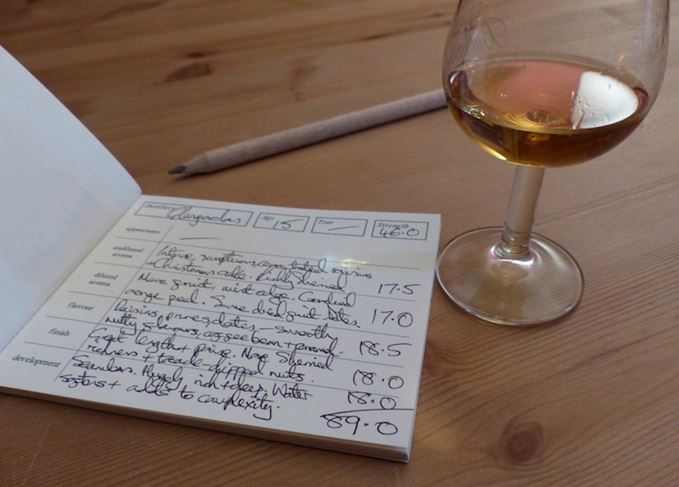 Distillery Glengoolas Age 15 Year — Strength 46.0
appearance —
undiluted aroma Intense, sumptuous,
+ Christmas cake. Richly Sherried 17.5
diluted aroma More fruit, Candied
orange peel. Some dried fruit dates. 17.0
flavour Raisins, prunes, dates – smoothly
nutty flavours, coffee bean + 18.5
finish Great length + poise. More Sherried
richness + treacle-dipped nuts. 18.0
development Seamless. Hugely rich + deep. Water
+ adds to complexity. 18.0
89.0